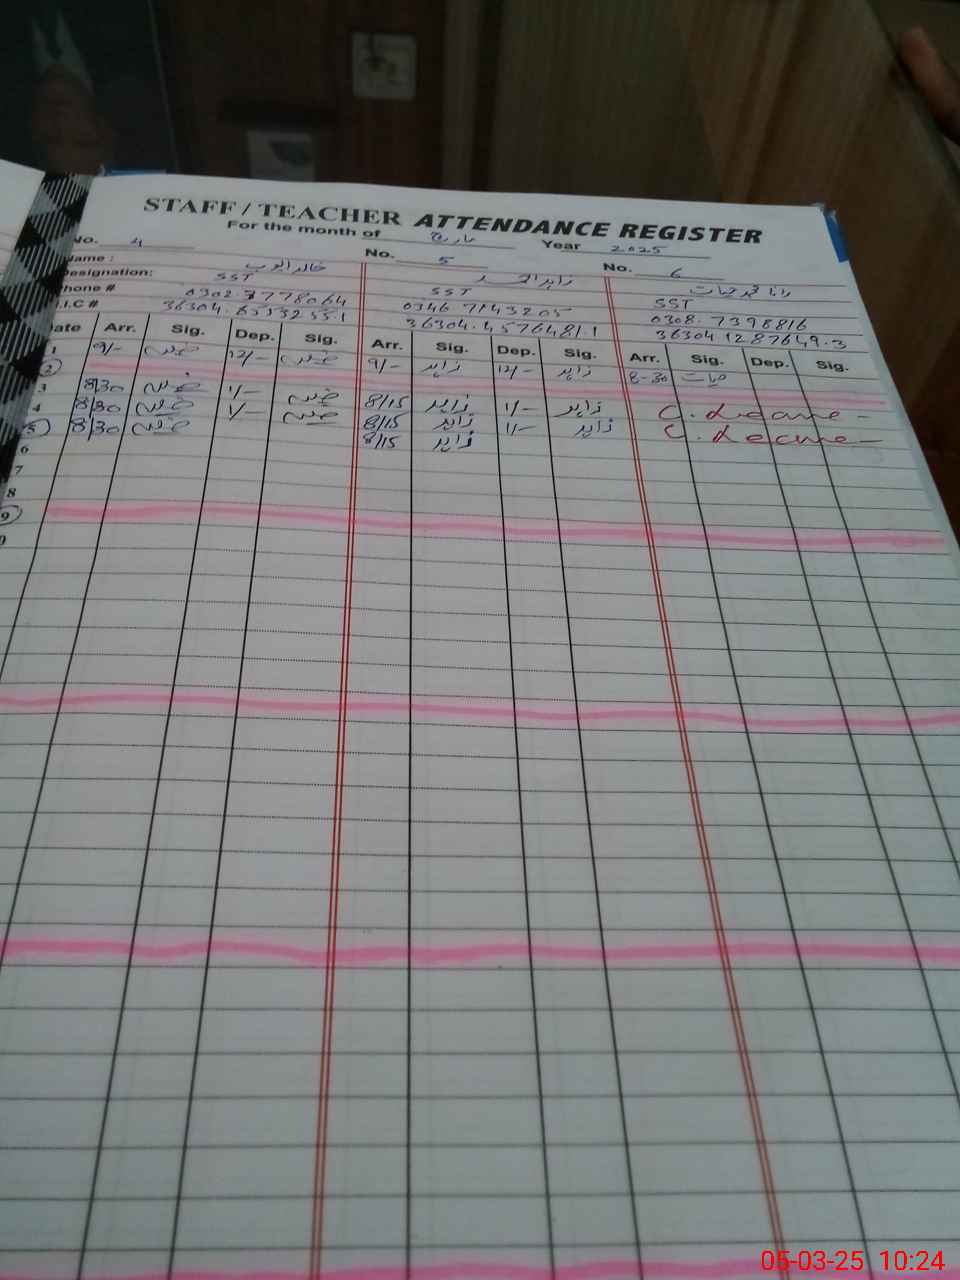 STAFF / TEACHER ATTENDANCE REGISTER
For the month of مارچ Year 2025
No. 4 No. 5 No. 6
Name : خالد ایوب
Designation: SST SST SST
Phone # 0302 7778064 0346 7143205 0308.7398816
I.C # 36304. 36304.4576481.1 36304 1287649.3
Date Arr. Sig. Dep. Sig. Arr. Sig. Dep. Sig. Arr. Sig. Dep. Sig.
1 9/- 12/- 9/- زاہد 12/- زاہد 8-30 حیات
2
3 8/30 1/- 8/15 زاہد 1/- زاہد C. Leave
4 8/30 1/- 8/15 زاہد 1/- زاہد C. Leave
5 8/30 8/15 زاہد
6
7
8
9
05-03-25 10:24